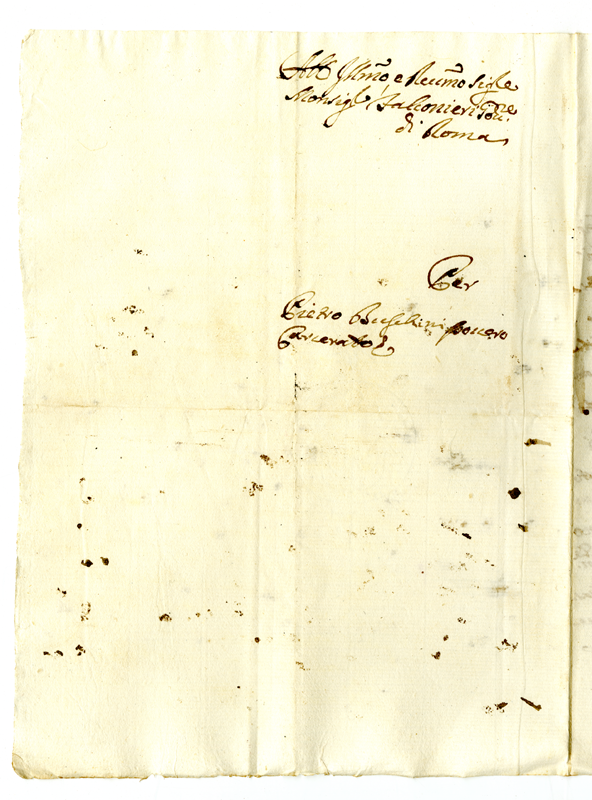 All Illmo e Reumo Sigre
Monsigre Falconieri Goure
di Roma
Per
Pietro Buschini pouero
Carcerato